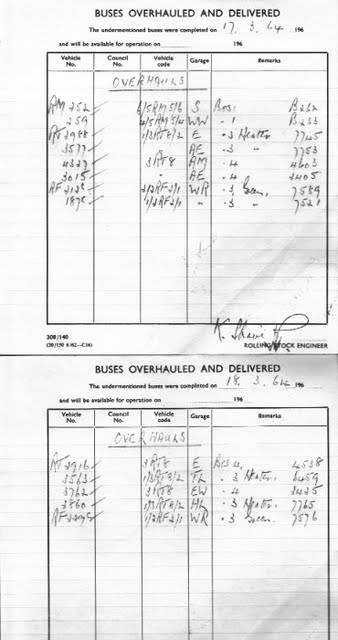 BUSES OVERHAULED AND DELIVERED
The undermentioned buses were completed on 17. 3. 64 196
and will be available for operation on 196
Vehicle No. Council No. Vehicle code Garage Remarks
OVERHAULS
RM 252 6/5RM5/6 S Bodi B262
259 4/5RM5/4 WW " 1 B233
RT 2988 1/3RT8/2 E " 3 Heater 7745
3577 " AE " 3 " 7753
4327 3RT8 AM " 4 4603
3015 " AE " 4 2405
RF 2/2RF2/1 WR " 3 7589
1/2RF2/1 " " 3 " 7521
308/140
ROLLING STOCK ENGINEER
BUSES OVERHAULED AND DELIVERED
The undermentioned buses were completed on 18. 3. 64 196
and will be available for operation on 196
Vehicle No. Council No. Vehicle code Garage Remarks
OVERHAULS
RT 2916 3RT8 E 4 4538
3563 1/3RT8/2 TL " 3 Heater 6459
3762 3RT8 EW " 4 2425
3860 1/3RT8/2 HL " 3 Heater 7765
RF 1/2RF2/1 WR " 3 7576